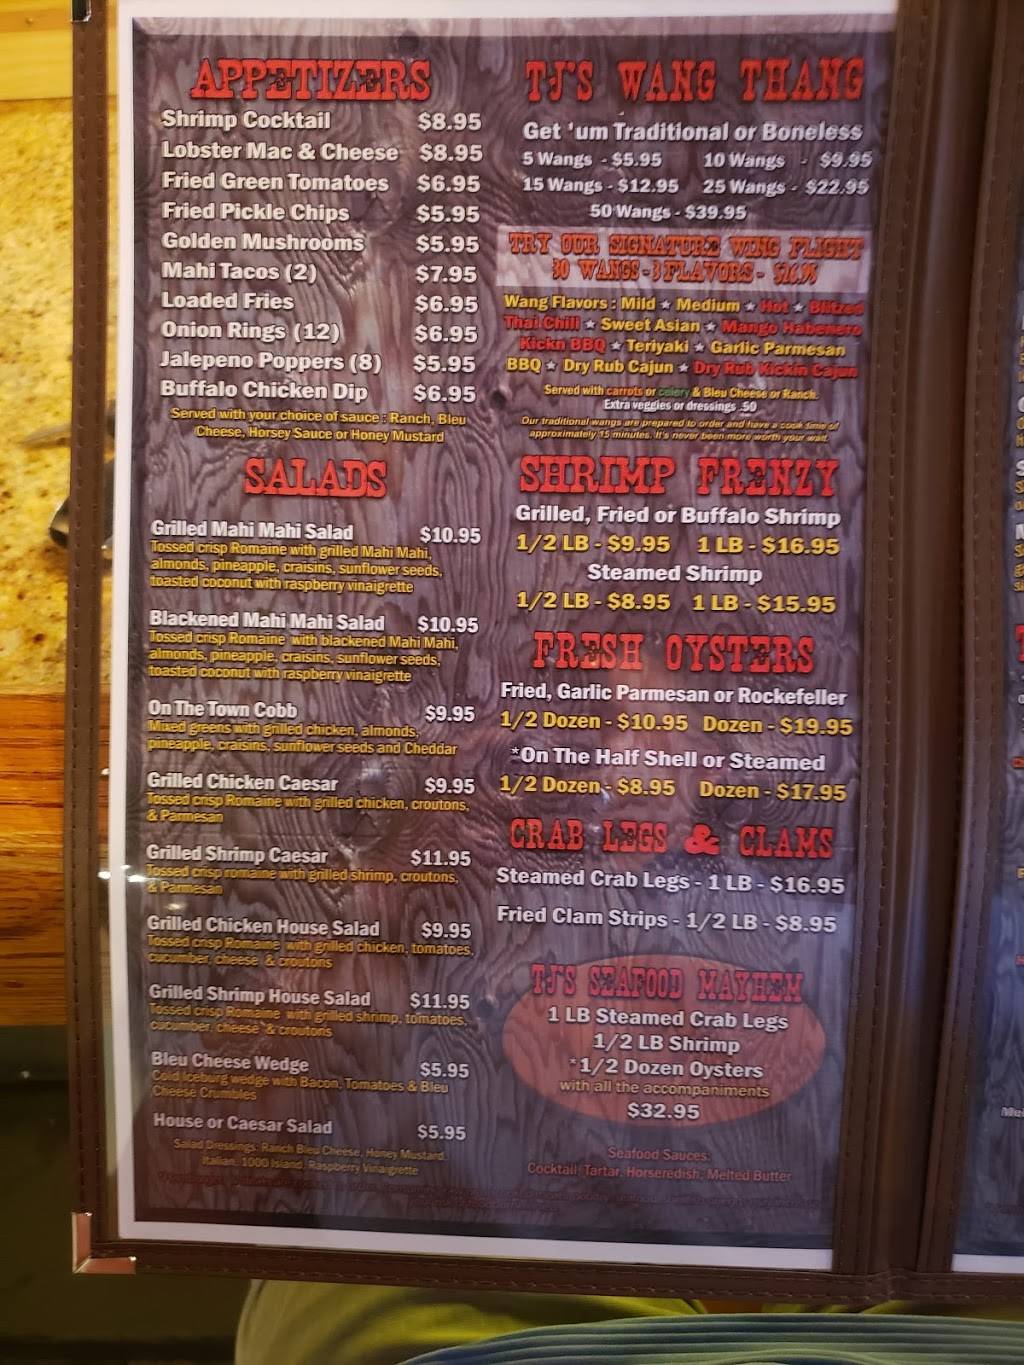 APPETIZERS
Shrimp Cocktail $8.95
Lobster Mac & Cheese $8.95
Fried Green Tomatoes $6.95
Fried Pickle Chips $5.95
Golden Mushrooms $5.95
Mahi Tacos (2) $7.95
Loaded Fries $6.95
Onion Rings (12) $6.95
Jalepeno Poppers (8) $5.95
Buffalo Chicken Dip $6.95
Served with your choice of sauce : Ranch, Bleu
Cheese, Horsey Sauce or Honey Mustard
SALADS
Grilled Mahi Mahi Salad $10.95
Tossed crisp Romaine with grilled Mahi Mahi,
almonds, pineapple, craisins, sunflower seeds,
toasted coconut with raspberry vinaigrette
Blackened Mahi Mahi Salad $10.95
Tossed crisp Romaine with blackened Mahi Mahi,
almonds, pineapple, craisins, sunflower seeds,
toasted coconut with raspberry vinaigrette
On The Town Cobb $9.95
Mixed greens with grilled chicken, almonds,
pineapple, craisins, sunflower seeds and Cheddar
Grilled Chicken Caesar $9.95
Tossed crisp Romaine with grilled chicken, croutons,
& Parmesan
Grilled Shrimp Caesar $11.95
Tossed crisp romaine with grilled shrimp, croutons,
& Parmesan
Grilled Chicken House Salad $9.95
Tossed crisp Romaine with grilled chicken, tomatoes,
cucumber, cheese & croutons
Grilled Shrimp House Salad $11.95
Tossed crisp Romaine with grilled shrimp, tomatoes,
cucumber, cheese & croutons
Bleu Cheese Wedge $5.95
Cold Iceburg wedge with Bacon, Tomatoes & Bleu
Cheese Crumbles
House or Caesar Salad $5.95
Salad Dressings: Ranch Bleu Cheese, Honey Mustard,
Italian, 1000 Island, Raspberry Vinaigrette
TJ'S WANG THANG
Get 'um Traditional or Boneless
5 Wangs - $5.95 10 Wangs - $9.95
15 Wangs - $12.95 25 Wangs - $22.95
50 Wangs - $39.95
TRY OUR SIGNATURE WING FLIGHT
30 WANGS - 3 FLAVORS -
Wang Flavors : Mild ★ Medium ★ Hot ★ Blitzed
Thai Chili ★ Sweet Asian ★ Mango Habenero
Kickn BBQ ★ Teriyaki ★ Garlic Parmesan
BBQ ★ Dry Rub Cajun ★ Dry Rub Kickin Cajun
Served with carrots or celery & Bleu Cheese or Ranch.
Extra veggies or dressings .50
Our traditional wangs are prepared to order and have a cook time of
approximately 15 minutes. It's never been more worth your wait.
SHRIMP FRENZY
Grilled, Fried or Buffalo Shrimp
1/2 LB - $9.95 1 LB - $16.95
Steamed Shrimp
1/2 LB - $8.95 1 LB - $15.95
FRESH OYSTERS
Fried, Garlic Parmesan or Rockefeller
1/2 Dozen - $10.95 Dozen - $19.95
*On The Half Shell or Steamed
1/2 Dozen - $8.95 Dozen - $17.95
CRAB LEGS & CLAMS
Steamed Crab Legs - 1 LB - $16.95
Fried Clam Strips - 1/2 LB - $8.95
TJ'S SEAFOOD MAYHEM
1 LB Steamed Crab Legs
1/2 LB Shrimp
*1/2 Dozen Oysters
with all the accompaniments
$32.95
Seafood Sauces:
Cocktail, Tartar, Horseredish, Melted Butter